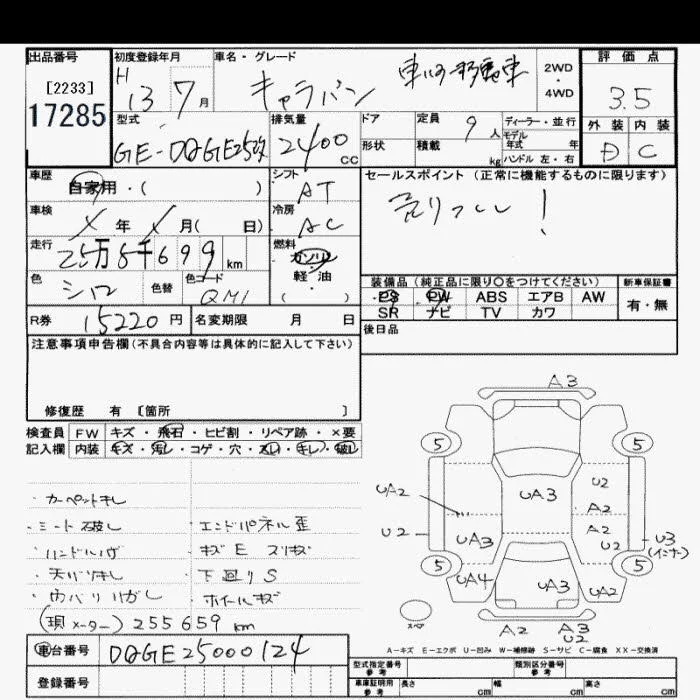 出品番号
[2233]
17285
初度登録年月
H 13 7月
車名・グレード
キャラバン
2WD
・
4WD
評価点
3.5
外装 内装
D C
型式
GE-DQGE25改
排気量
2400 CC
ドア
形状
定員 9人
積載 kg
ディーラー・並行
モデル
年式 年
ハンドル 左・右
車歴
自家用・( )
シフト
AT
セールスポイント (正常に機能するものに限ります)
売りつくし!
車検
X 年 X 月( 日)
冷房
AC
走行
25万5千699 km
燃料
ガソリン
・
軽油
( )
色
シロ
色替
色コード
QM1
装備品 (純正品に限り○をつけてください)
PS PW ABS エアB AW
SR ナビ TV カワ
新車保証書
有・無
R券 15220円
名変期限 月 日
後日品
注意事項申告欄(不具合内容等は具体的に記入して下さい)
修復歴 有 [箇所 ]
検査員 FW キズ・飛石・ヒビ割・リペア跡・×要
記入欄 内装 キズ・汚レ・コゲ・穴・スレ・キレ・破レ
・カーペットキレ
・シート破レ
・ハンドルハゲ
・エンドパネル歪
・キズE スリキズ
・下回りS
・ホイールキズ
(現メーター) 255659 km
A3
5 5
UA2
U2
UA3
UA3
U2
A2
A2
U2
U3
(インナー)
5 5
UA4
UA3
UA2
スペア
A2
A3
U2
A-キズ E-エクボ U-凹み W-補修跡 S-サビ C-腐食 XX-交換済
車台番号 DQGE25000124
登録番号
型式指定番号
参考
類別区分番号
参考
車庫証明用
参考
長さ cm
幅 cm
高さ cm